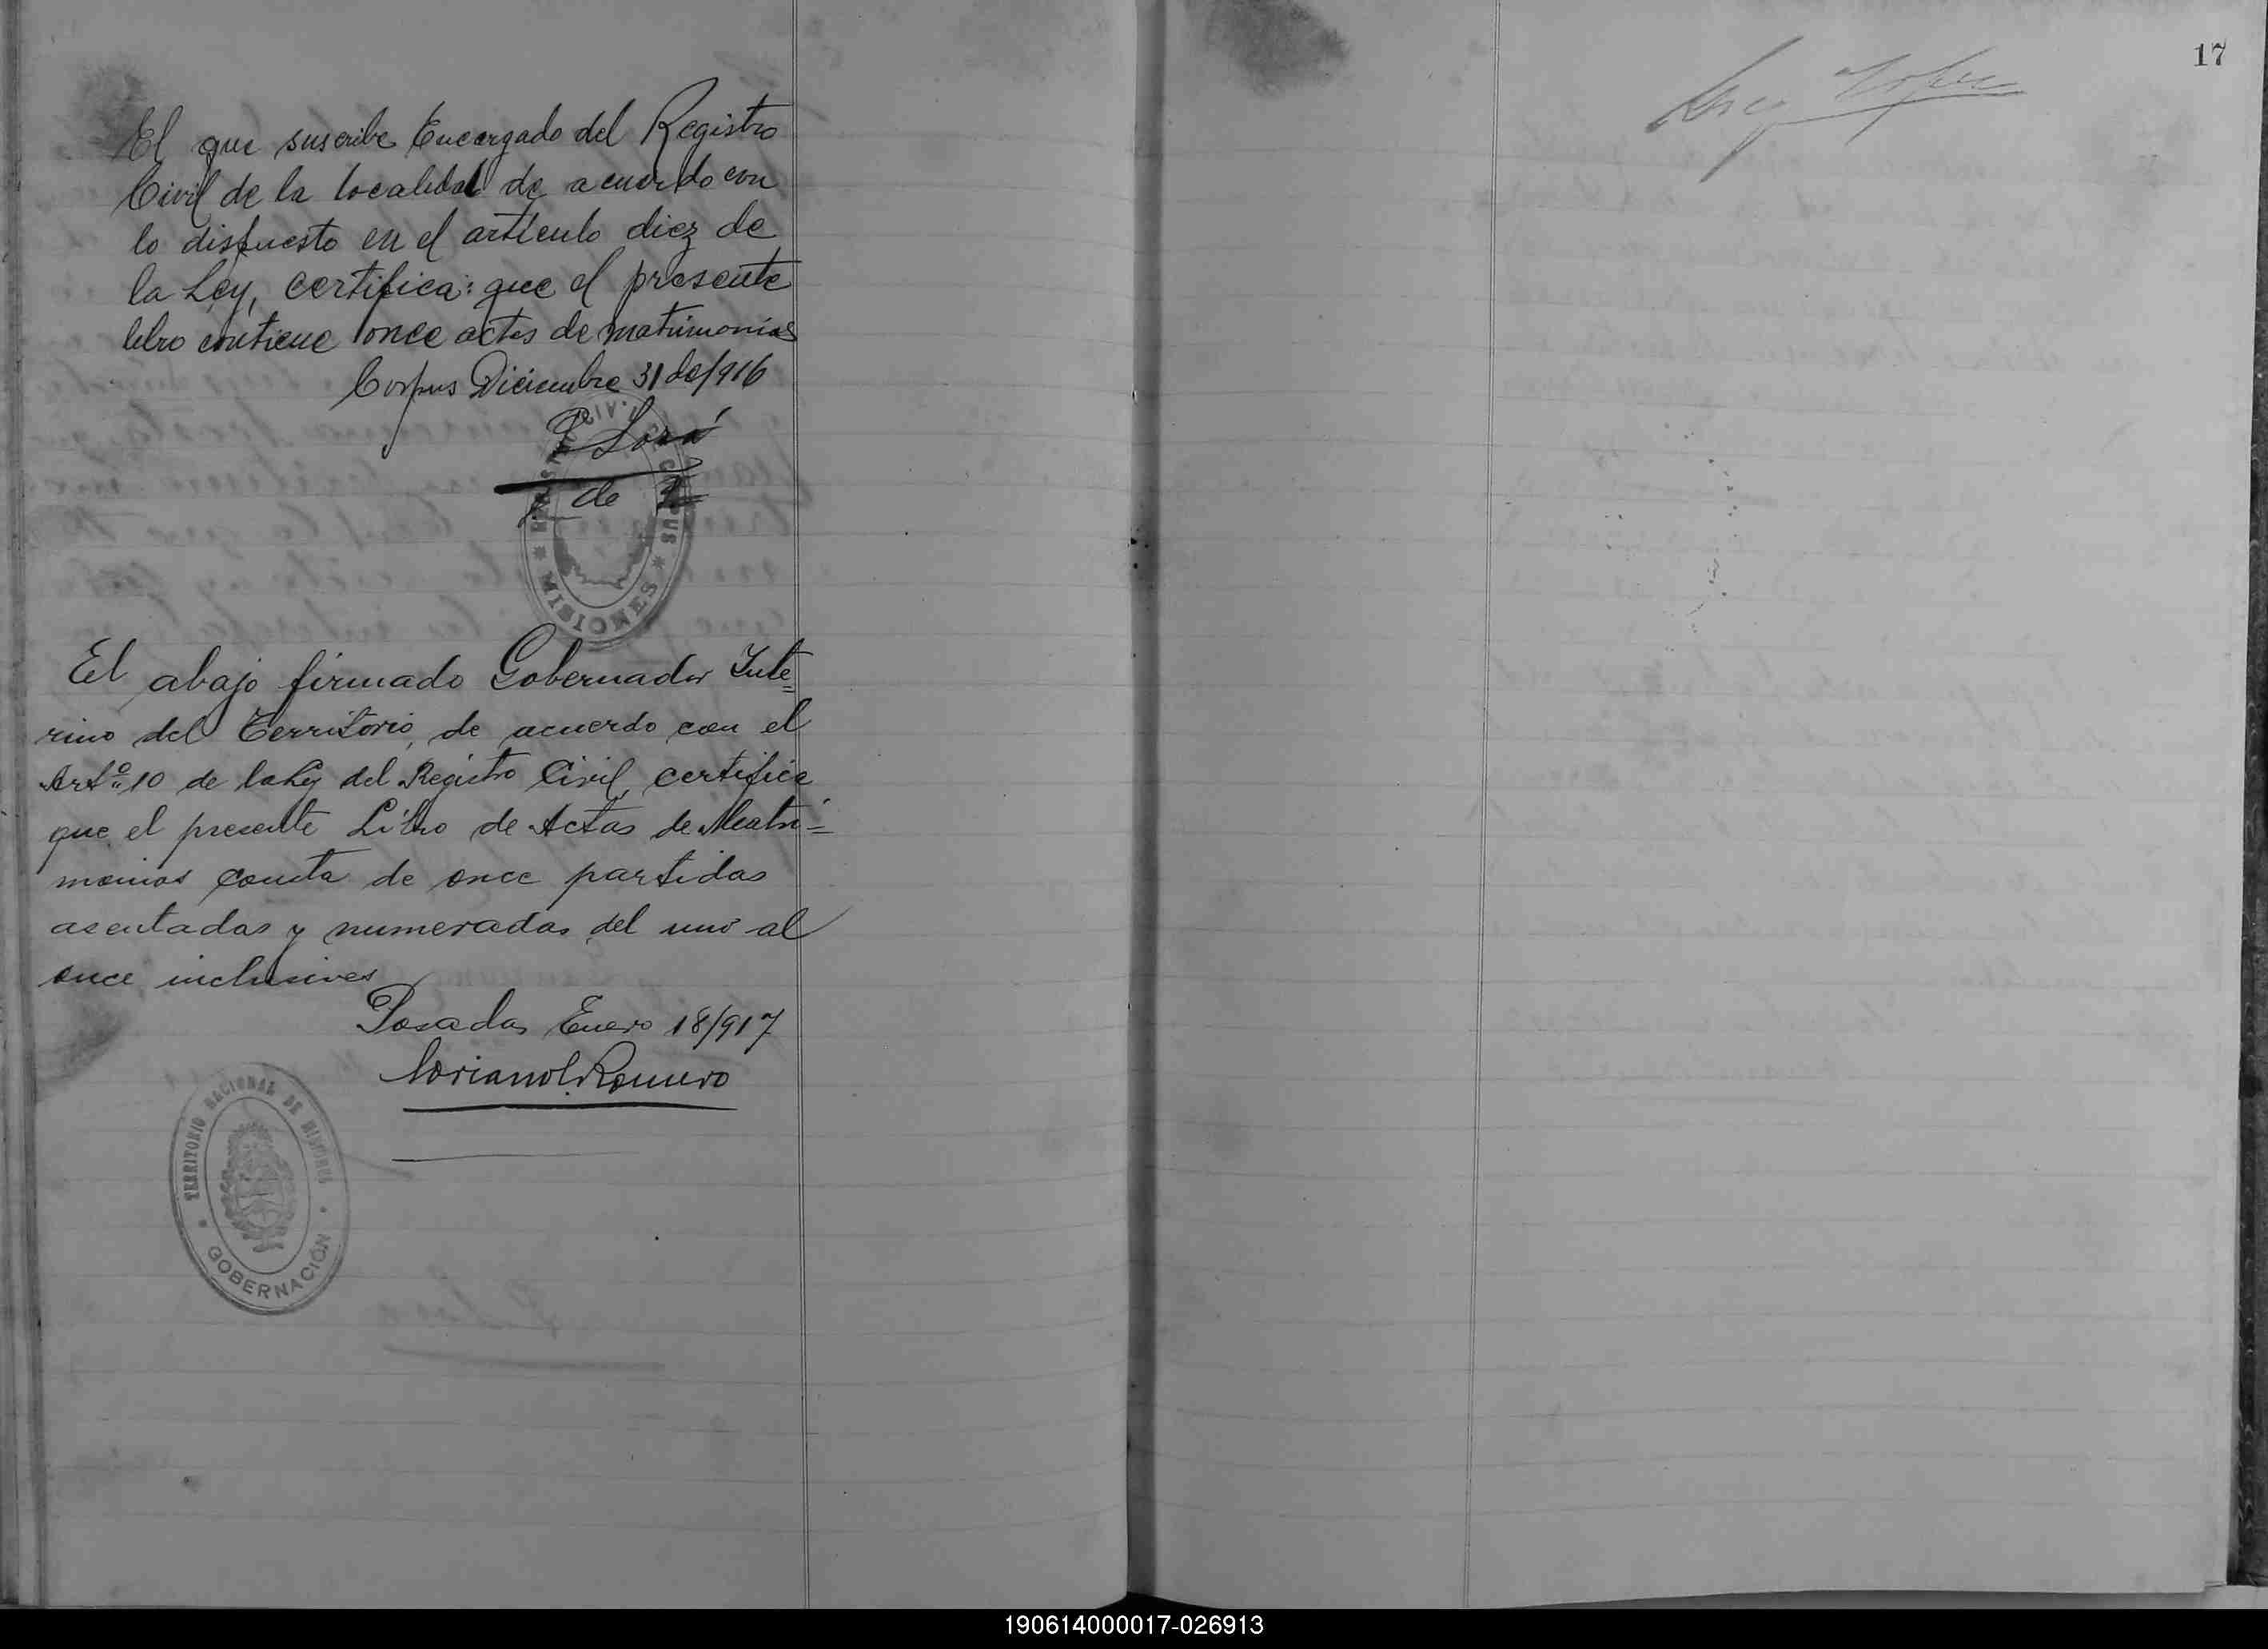 El que suscribe Encargado del Registro
Civil de la localidad de acuerdo con
lo dispuesto en el artículo diez de
la Ley, certifica: que el presente
libro contiene once actas de matrimonios
Corpus Diciembre 31 de/916
REGISTRO CIVIL CORPUS
J. de P.
* MISIONES *
El abajo firmado Gobernador Inte=
rino del Territorio, de acuerdo con el
Artº 10 de la Ley del Registro Civil, certifica
que el presente Libro de Actas de Matri=
monios consta de once partidas
asentadas y numeradas del uno al
once inclusives
Posadas Enero 18/917
Romero
TERRITORIO NACIONAL DE MISIONES
GOBERNACIÓN
17
190614000017-026913